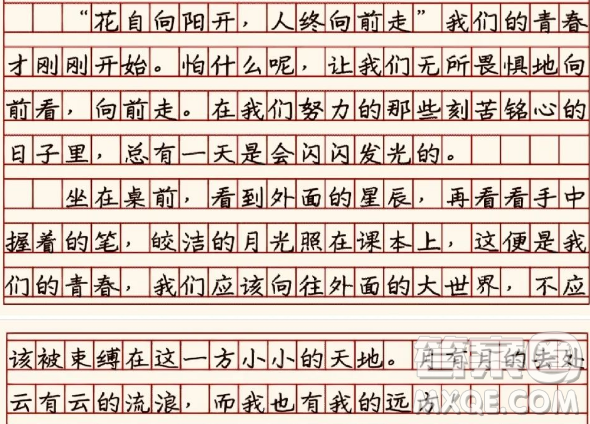 “花自向阳开，人终向前走”我们的青春
才刚刚开始。怕什么呢，让我们无所畏惧地向
前看，向前走。在我们努力的那些刻苦铭心的
日子里，总有一天是会闪闪发光的。
坐在桌前，看到外面的星辰，再看看手中
握着的笔，皎洁的月光照在课本上，这便是我
们的青春，我们应该向往外面的大世界，不应
该被束缚在这一方小小的天地。月有月的去处
云有云的流浪，而我也有我的远方